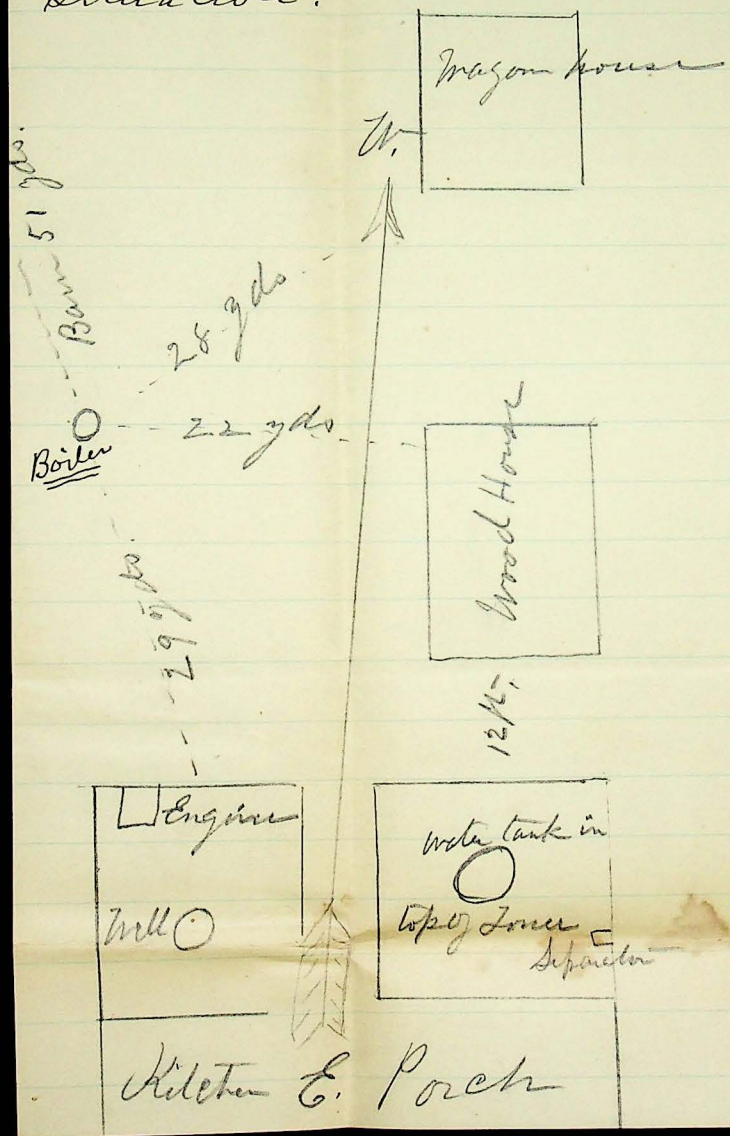 Wagon house
W.
Barn 51 yds.
28 yds.
22 yds
Boiler
Wood House
29 yds.
12 ft.
Engine
water tank in
top of Tower
Well
Separator
Kitchen E. Porch